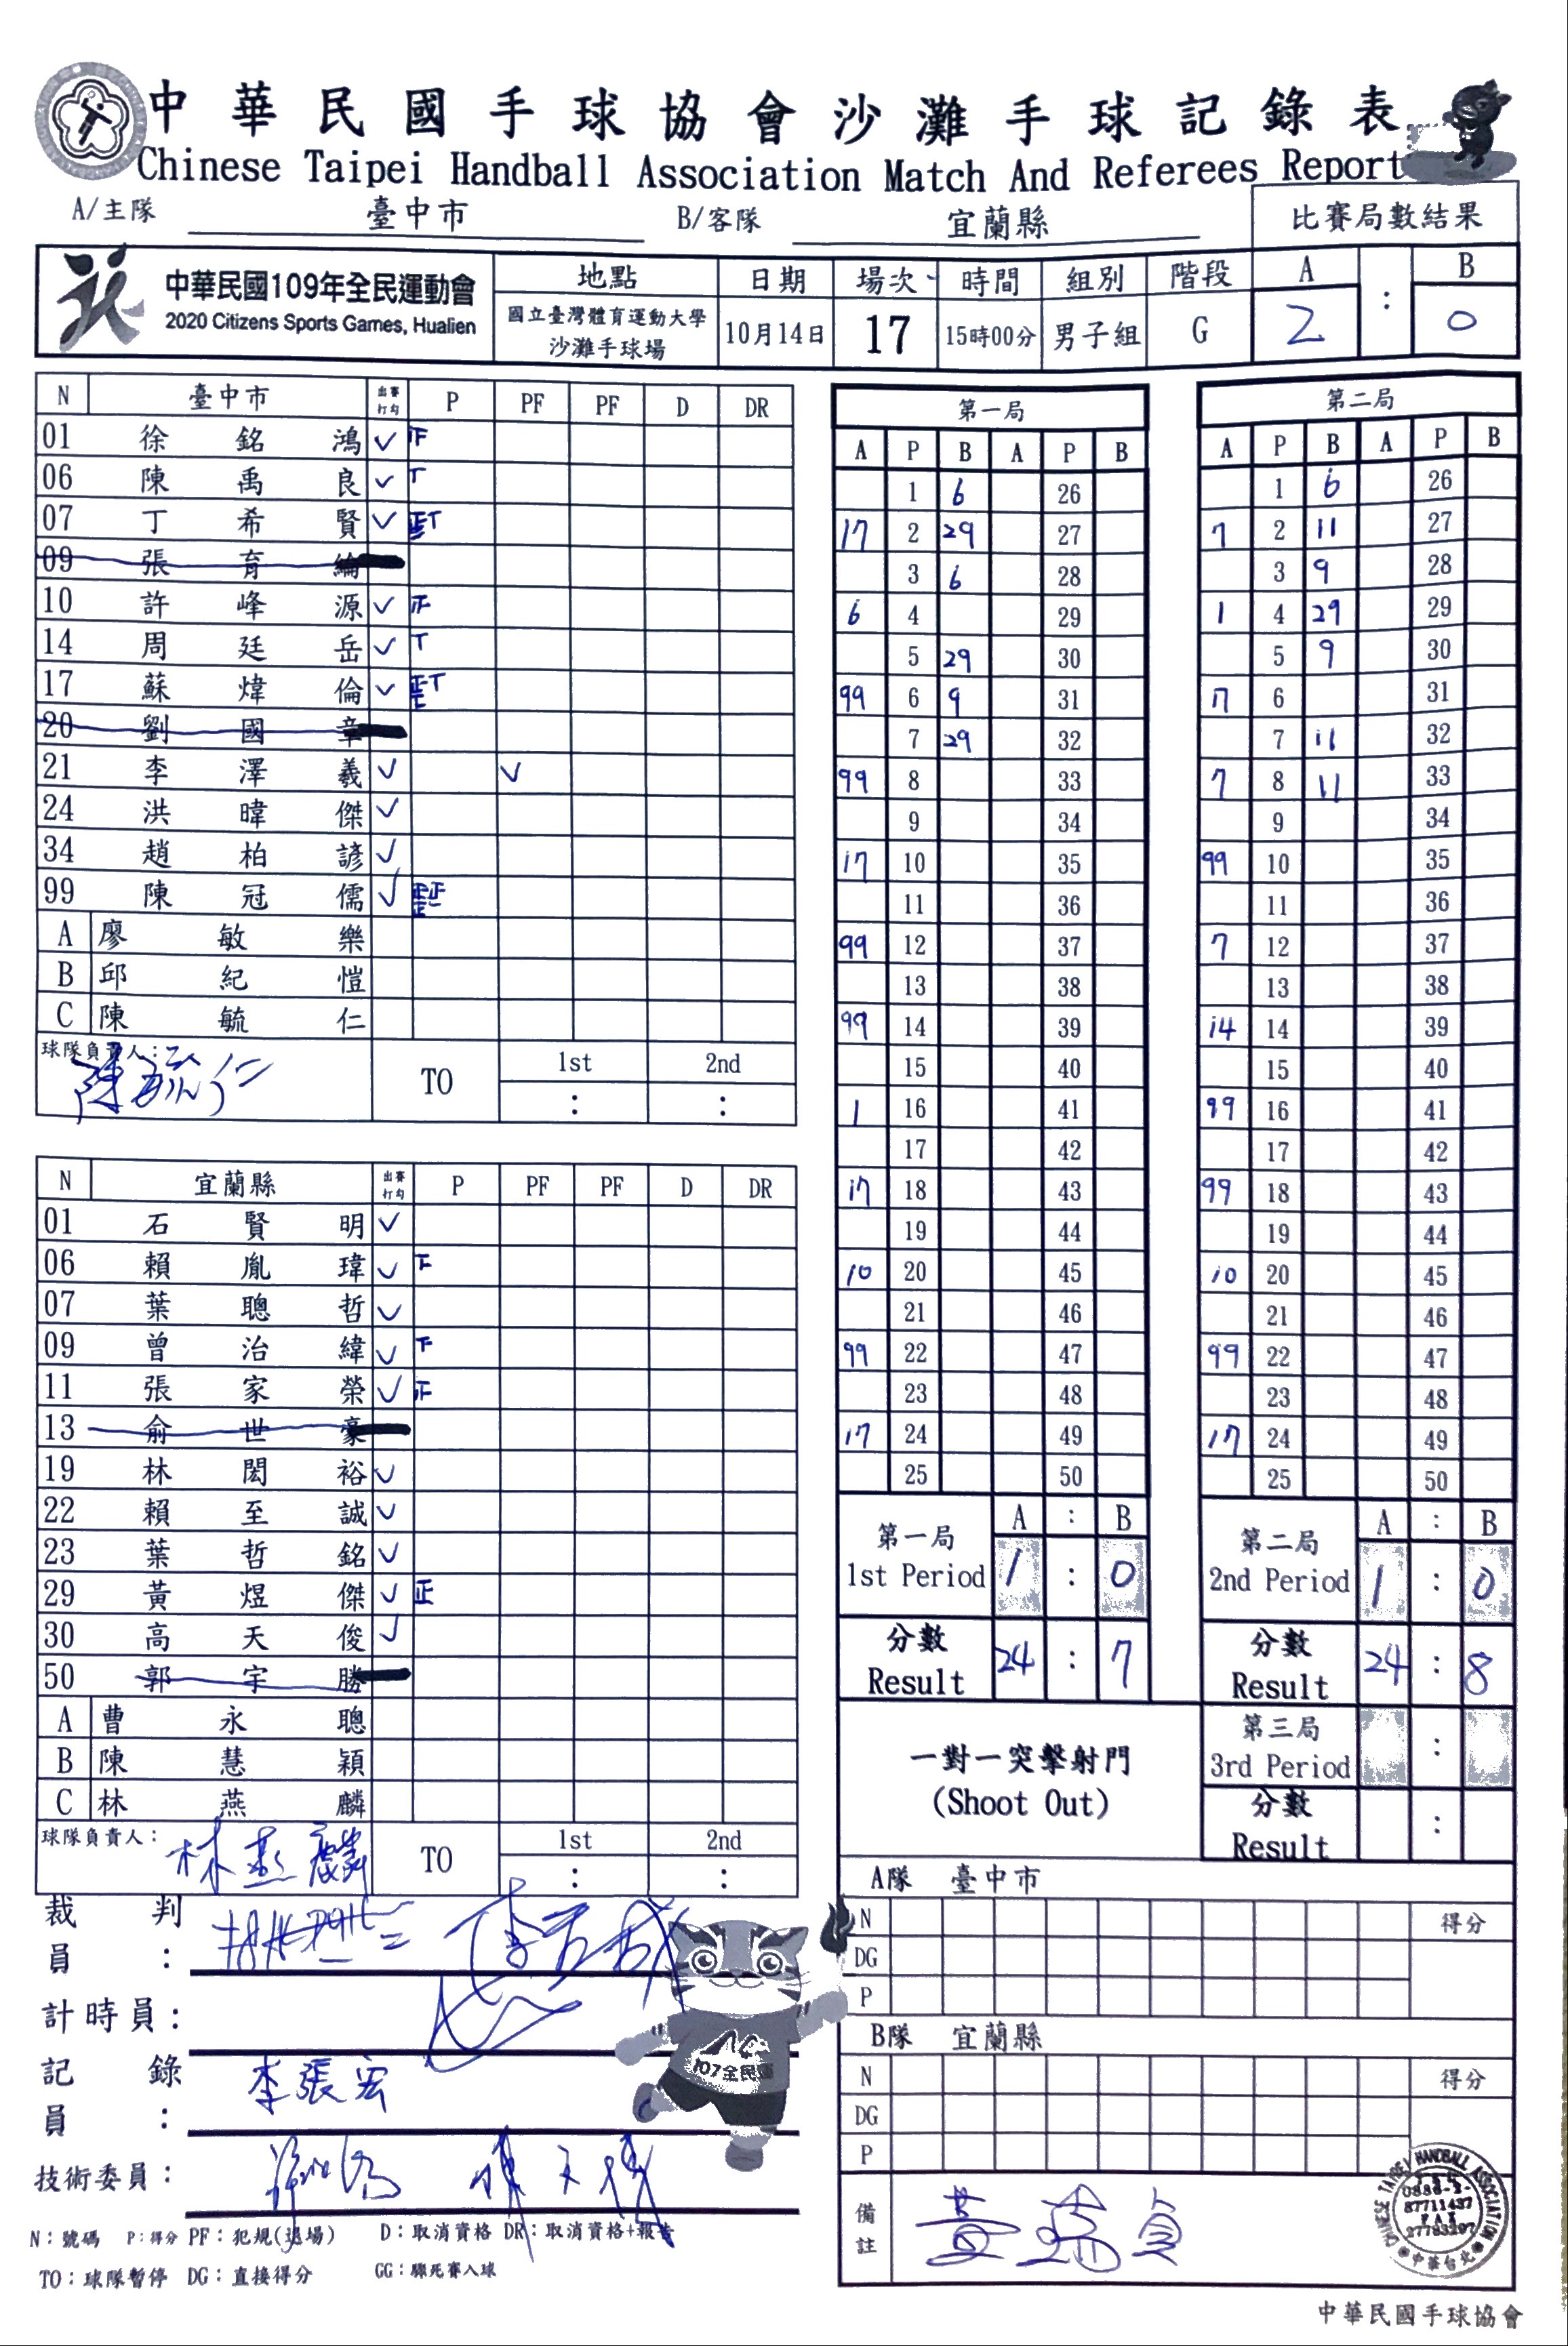 中華民國手球協會沙灘手球記錄表
Chinese Taipei Handball Association Match And Referees Report
A/主隊 臺中市 B/客隊 宜蘭縣 比賽局數結果
中華民國109年全民運動會
2020 Citizens Sports Games, Hualien
地點 日期 場次 時間 組別 階段 A : B
國立臺灣體育運動大學
沙灘手球場
10月14日 17 15時00分 男子組 G 2 0
N 臺中市 出賽打勾 P PF PF D DR
01 徐銘鴻 ✓ 正
06 陳禹良 ✓ T
07 丁希賢 ✓ 正T
09 張育綸
10 許峰源 ✓ 正
14 周廷岳 ✓ T
17 蘇煒倫 ✓ 正正T
20 劉國章
21 李澤羲 ✓ ✓
24 洪暐傑 ✓
34 趙柏諺 ✓
99 陳冠儒 ✓
A 廖敏樂
B 邱紀愷
C 陳毓仁
球隊負責人: 陳毓仁
TO 1st 2nd
: :
N 宜蘭縣 出賽打勾 P PF PF D DR
01 石賢明 ✓
06 賴胤瑋 ✓ 下
07 葉聰哲 ✓
09 曾治緯 ✓ 下
11 張家榮 ✓ 正
13 俞世豪
19 林閎裕 ✓
22 賴至誠 ✓
23 葉哲銘 ✓
29 黃煜傑 ✓ 正
30 高天俊 ✓
50 郭宇勝
A 曹永聰
B 陳慧穎
C 林燕麟
球隊負責人: 林燕麟
TO 1st 2nd
: :
裁判員:
計時員:
記錄員: 李張宏
技術委員:
N:號碼 P:得分 PF:犯規(退場) D:取消資格 DR:取消資格+報告
TO:球隊暫停 DG:直接得分 GG:驟死賽入球
107全民運
第一局
A P B A P B
1 6 26
17 2 29 27
3 6 28
6 4 29
5 29 30
99 6 9 31
7 29 32
99 8 33
9 34
17 10 35
11 36
99 12 37
13 38
99 14 39
15 40
1 16 41
17 42
17 18 43
19 44
10 20 45
21 46
99 22 47
23 48
17 24 49
25 50
第一局 A : B
1st Period 1 : 0
分數
Result 24 : 7
第二局
A P B A P B
1 6 26
7 2 11 27
3 9 28
1 4 29 29
5 9 30
17 6 31
7 11 32
7 8 11 33
9 34
99 10 35
11 36
7 12 37
13 38
14 14 39
15 40
99 16 41
17 42
99 18 43
19 44
10 20 45
21 46
99 22 47
23 48
17 24 49
25 50
第二局 A : B
2nd Period 1 : 0
分數
Result 24 : 8
一對一突擊射門
(Shoot Out)
第三局
3rd Period :
分數
Result :
A隊 臺中市
N 得分
DG
P
B隊 宜蘭縣
N 得分
DG
P
備註
CHINESE TAIPEI HANDBALL ASSOCIATION
87711437
FAX
27783297
中華台北
中華民國手球協會